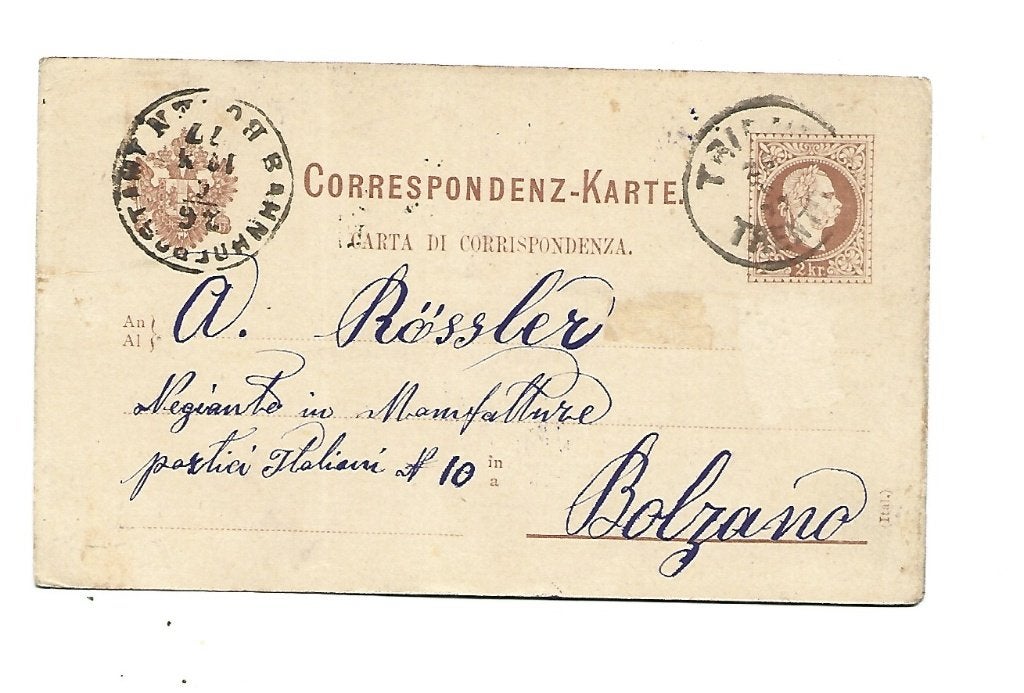 CORRESPONDENZ-KARTE.
CARTA DI CORRISPONDENZA.
BAHNHOFPOSTAMT BOZEN
26
77
TRENT
2 kr.
An
Al
A. Rössler
Negiante in Manifatture
portici Italiani N 10
in
a
Bolzano
Ital.)